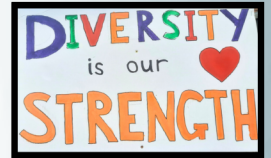 DIVERSITY
is our
STRENGTH